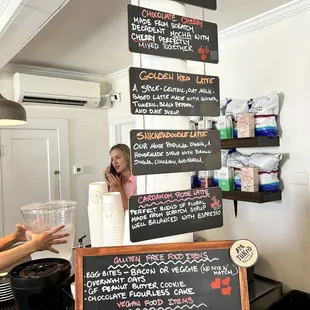 CHOCOLATE CHERRY
MADE FROM SCRATCH
DECADENT
MOCHA WITH
CHERRY PERFECTLY
MIXED TOGETHER
GOLDEN MILK LATTE
A SPICE-CENTRIC, OAT
MILK-BASED LATTE MADE WITH
TURMERIC, BLACK PEPPER,
SNICKERDOODLE LATTE
OUR MOST POPULAR DRINK IS A
HOMEMADE SYRUP MADE WITH BROWN
SUGAR, CINNAMON, AND
CARDAMOM ROSE LATTE
PERFECT BLEND OF FLORAL
MADE FROM SCRATCH SYRUP
WELL BALANCED WITH ESPRESSO
GLUTEN FREE ITEMS
EGG BITES - BACON OR VEGGIE (NO MIX)
OVERNIGHT OATS
GF PEANUT BUTTER COOKIE
CHOCOLATE FLOURLESS CAKE
VEGAN FOOD ITEMS